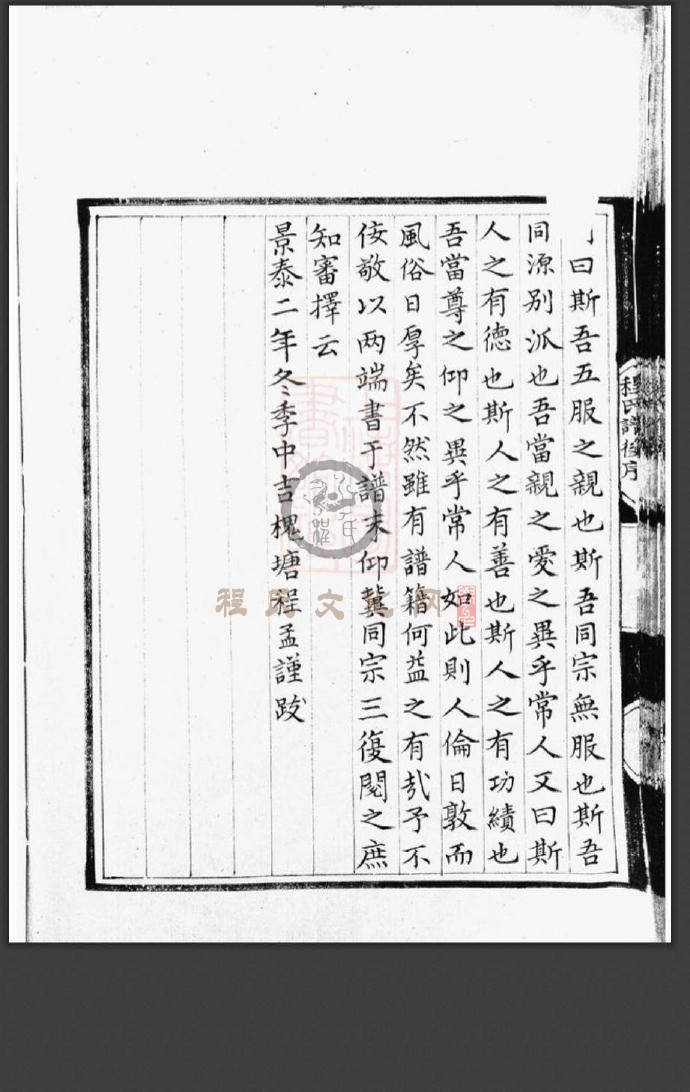 曰斯吾五服之親也斯吾同宗無服也斯吾
同源別派也吾當親之愛之異乎常人又曰斯
人之有德也斯人之有善也斯人之有功績也
吾當尊之仰之異乎常人如此則人倫日敦而
風俗日厚矣不然雖有譜籍何益之有㢤予不
佞敬以两端書于譜末仰冀同宗三復閱之庶
知審擇云
景泰二年冬季中吉槐塘程孟謹跋
程氏譜後序
程氏文化网